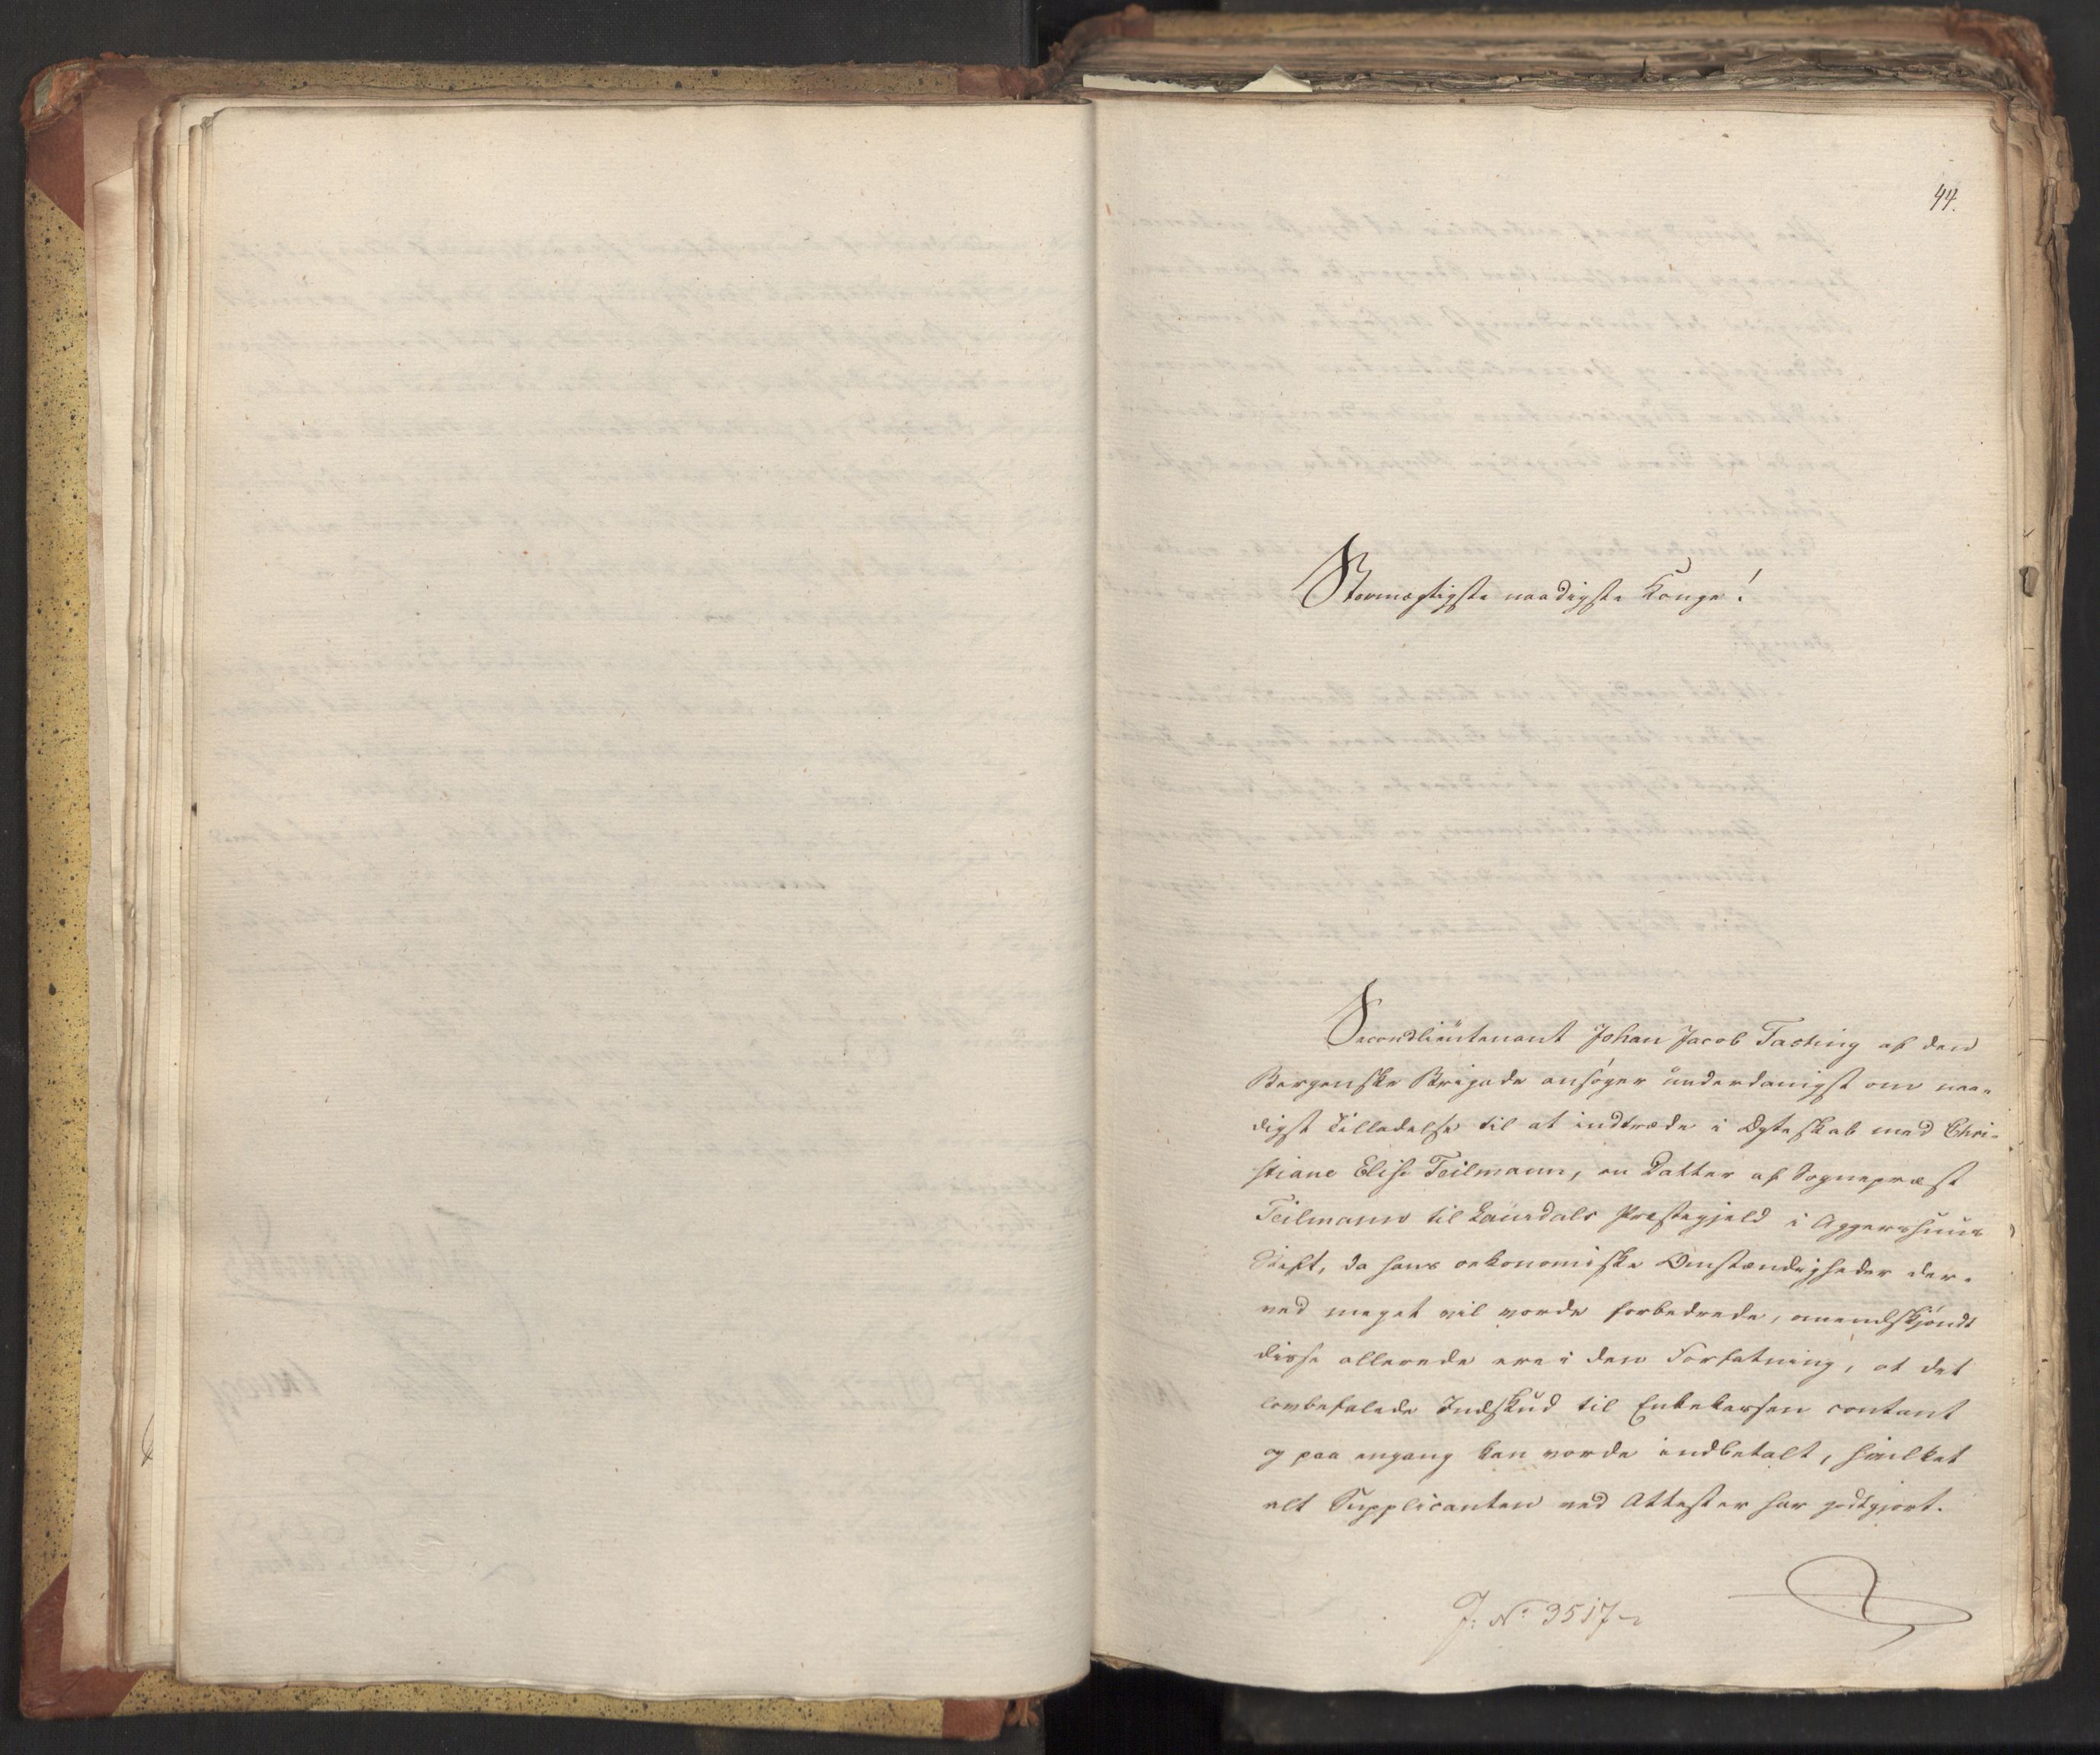 44.
Stormægtigste naadigste Konge!
Secondlieutenant Johan Jacob Tasting af den
Bergenske Brigade ansøger underdanigst om naa-
digst Tilladelse til at indtræde i Ægteskab med Chri-
stiane Elise Teilmann, en Datter af Sognepræst
Teilmann til Laurdals Præstegjeld i Aggershuus
Stift, da hans oekonomiske Omstændigheder der-
ved meget vil vorde forbedrede, omendskjøndt
disse allerede ere i den Forfatning, at det
lovbefalede Indskud til Enkekassen contant
og paa engang kan vorde indbetalt, hvilket
alt Supplicanten ved Attester har godtgjort.
J: No 3517